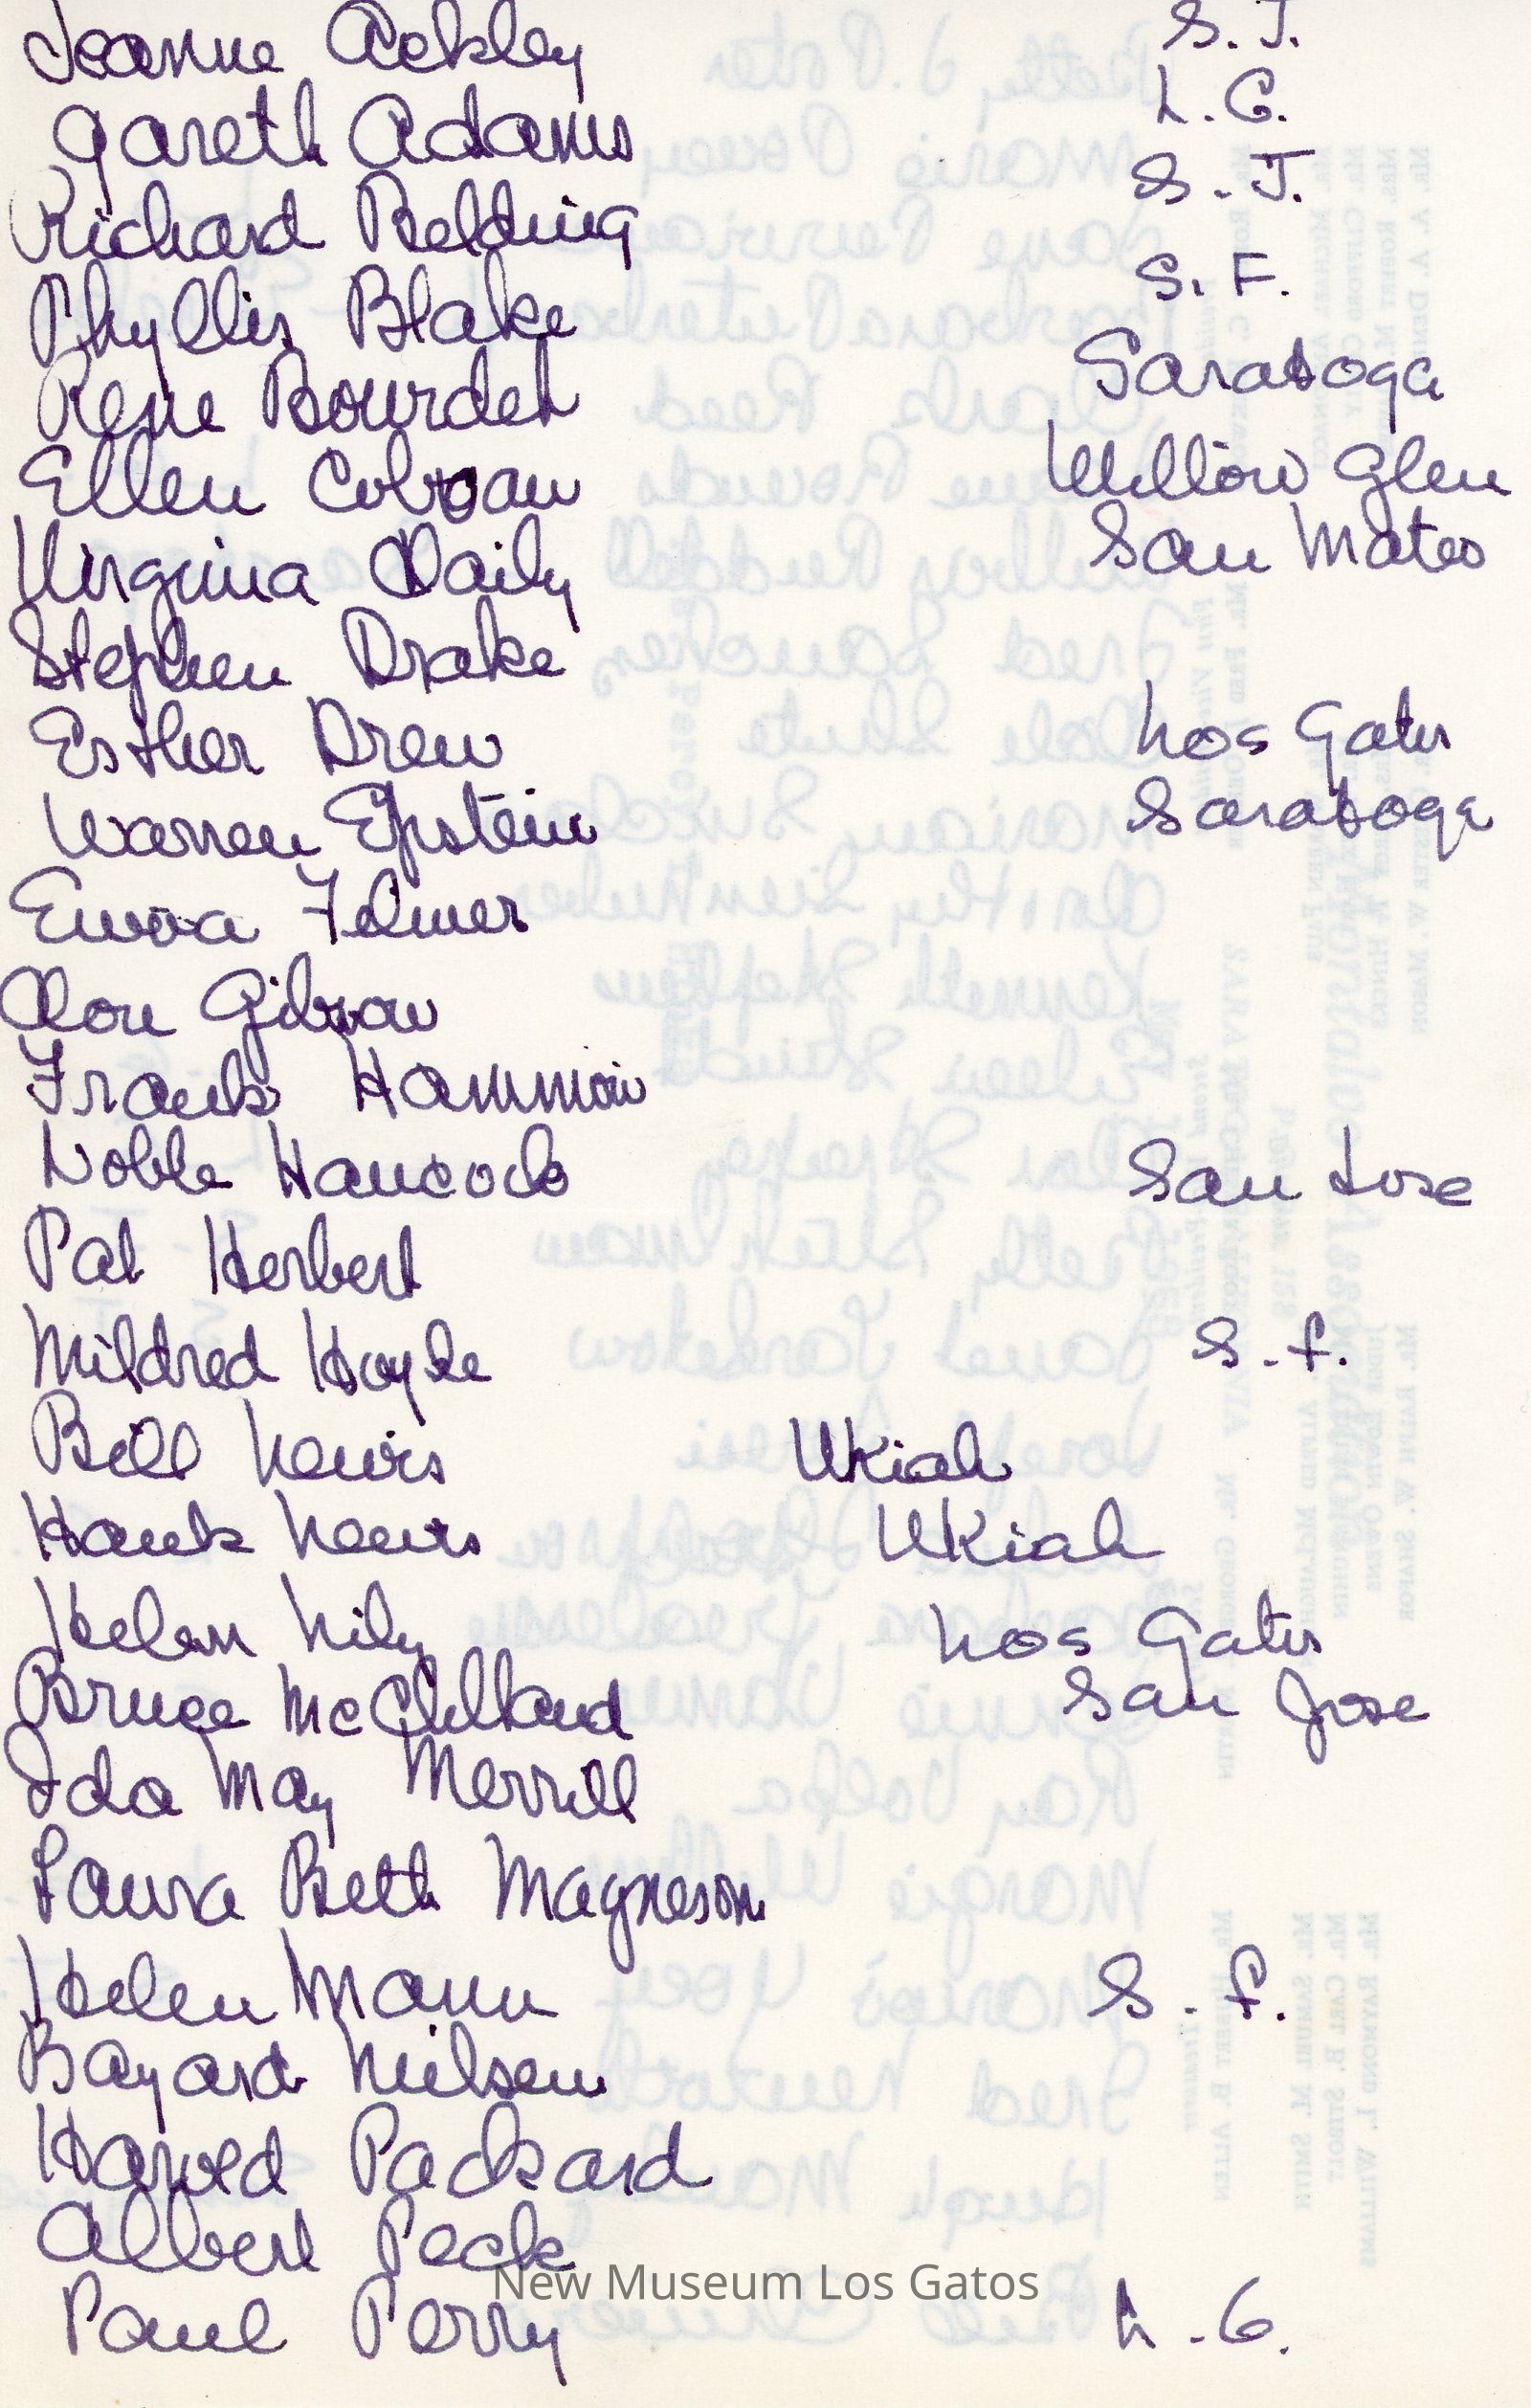 Jeanne Ackley S. J.
Gareth Adams L. G.
Richard Belding S. J.
Phyllis Blake S. F.
Rene Bourdet Saratoga
Ellen Willow Glen
Virginia Daily San Mateo
Stephen Drake
Esther Drew Los Gatos
Warren Epstein Saratoga
Emma
Gibson
Frank Hammon
Noble Hancock San Jose
Pat Herbert
Mildred Hoyle S. F.
Bill Lewis Ukiah
Hank Lewis Ukiah
Helen Lily Los Gatos
Bruce McClelland San Jose
Ida May Merrill
Laura Beth Magneson
Helen Mann S. F.
Bayard Nielsen
Packard
Albert Peck
New Museum Los Gatos
Paul Perry L. G.